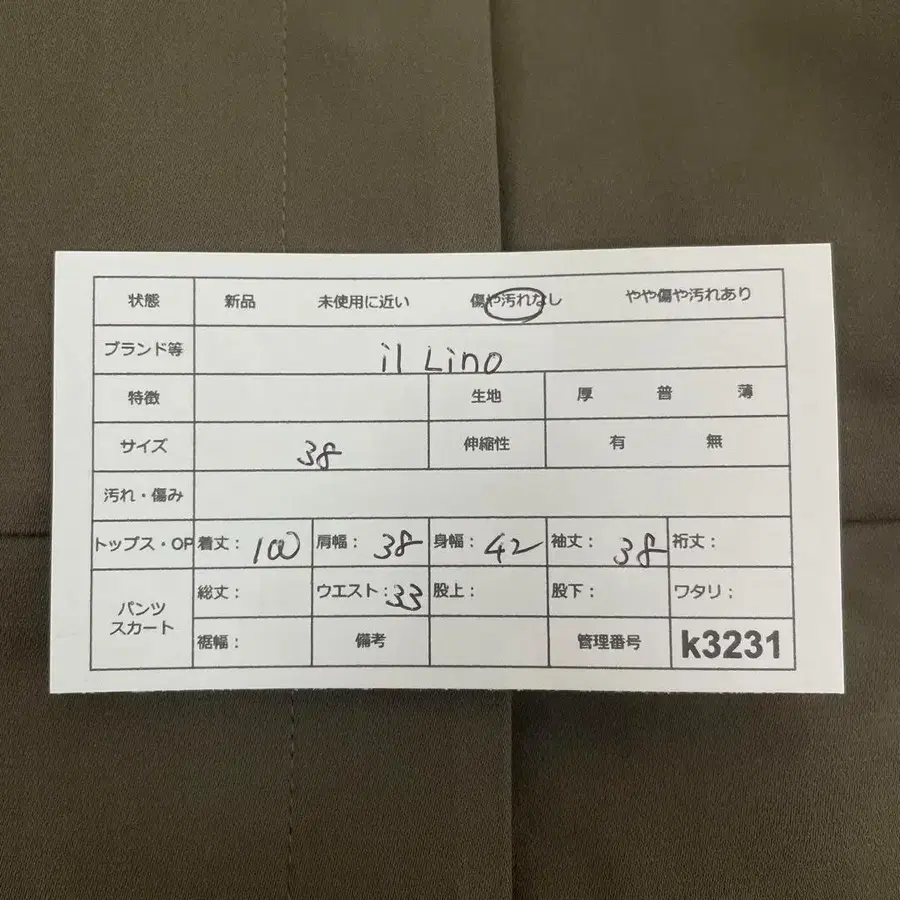 状態 新品 未使用に近い 傷や汚れなし やや傷や汚れあり
ブランド等 il Lino
特徴 生地 厚 普 薄
サイズ 38 伸縮性 有 無
汚れ・傷み
トップス・OP 着丈: 100 肩幅: 38 身幅: 42 袖丈: 38 裄丈:
パンツ
スカート
総丈: ウエスト: 33 股上: 股下: ワタリ:
裾幅: 備考 管理番号 k3231